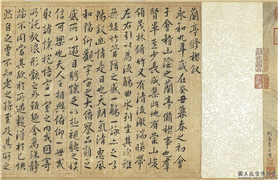 蘭亭修禊敘
永和九年歲在癸丑暮春之初會
于會稽山陰之蘭亭修禊事也羣
賢畢至少長咸集此地有崇山峻
領茂林修竹又有清流激湍暎帶
左右引以為流觴曲水列坐其次雖
無絲竹管絃之盛一觴一詠亦足以
暢敘幽情是日也天朗氣清惠風和
暢仰觀宇宙之大俯察品類之
盛所以遊目騁懷足以極視聽之娛
信可樂也夫人之相與俯仰一世或
取諸懷抱悟言一室之內或因寄
所託放浪形骸之外雖趣舍萬殊靜
躁不同當其欣於所遇暫得於己快
然自足不知老之將至及其所之